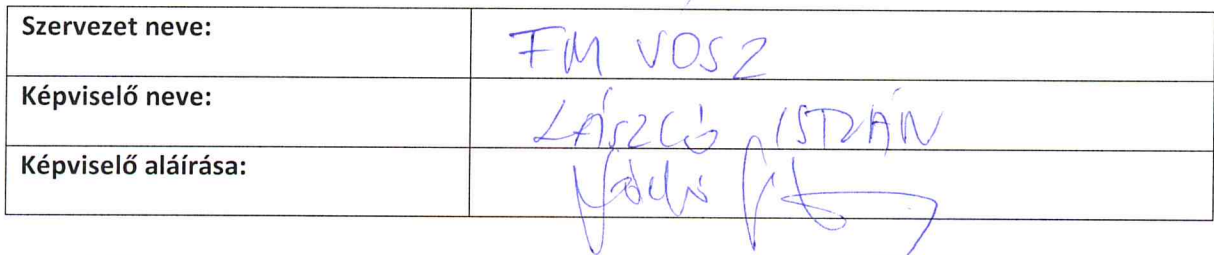 Szervezet neve: FM VOSZ
Képviselő neve: LÁSZLÓ ISTVÁN
Képviselő aláírása: